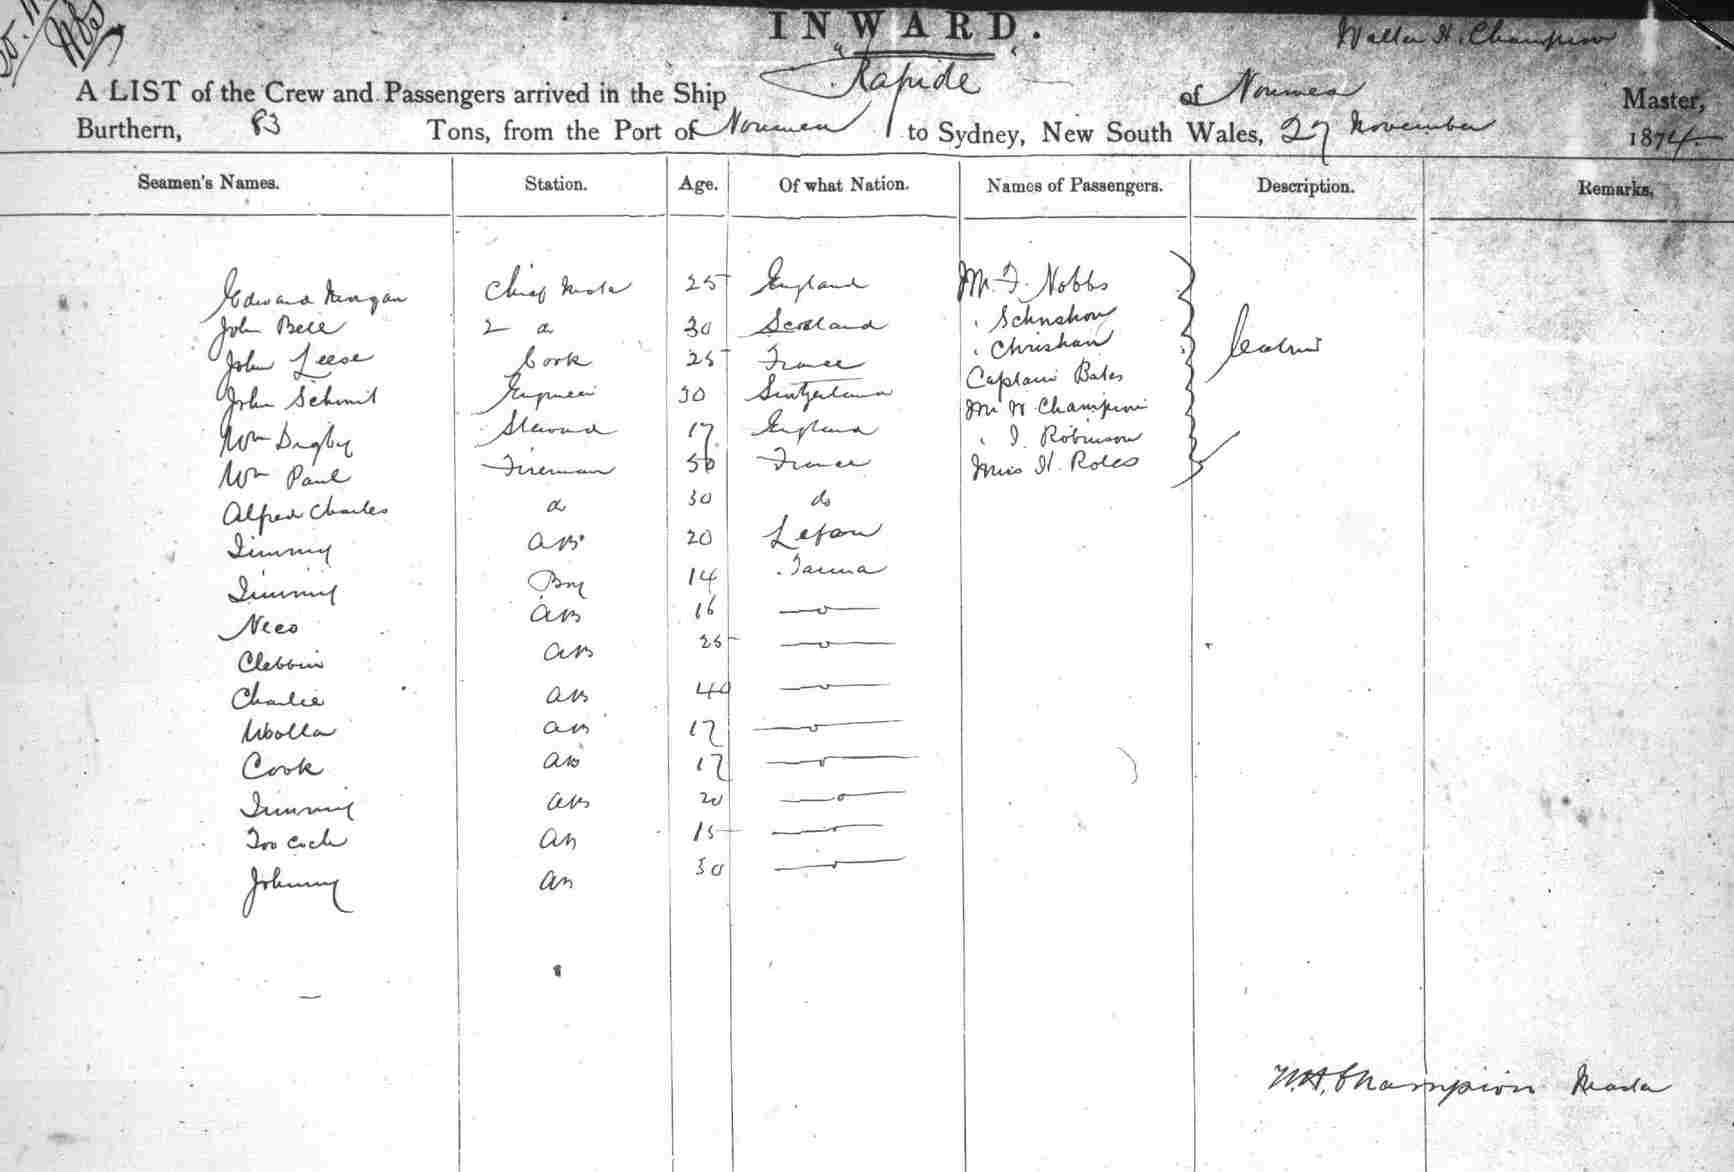 INWARD.
Walter H. Champion
A LIST of the Crew and Passengers arrived in the Ship "Rapide" of Noumea Master,
Burthern, 83 Tons, from the Port of Noumea to Sydney, New South Wales, 27 November 1874
Seamen's Names. Station. Age. Of what Nation. Names of Passengers. Description. Remarks.
Edward Mangan Chief Mate 25 England Mr. F. Nobbs
John Bell 2 d 30 Scotland
John Leese Cook 25 France " Christian
John Schmit Engineer 30 Switzerland Captain Bates
Wm Digby Steward 17 England Mr W Champion
Wm Paul Fireman 50 France " I. Robinson
Miss H. Roles
Cabin
Alfred Charles d 30 do
Jimmy AB 20 Lefou
Jimmy Boy 14 Tanna
Neco AB 16 —o—
Clebbin AB 25 —o—
Charlie AB 40 —o—
Wolla AB 17 —o—
Cook AB 17 —o—
Jimmy AB 20 —o—
AB 15 —o—
Johnny AB 30 —o—
W.H. Champion Master